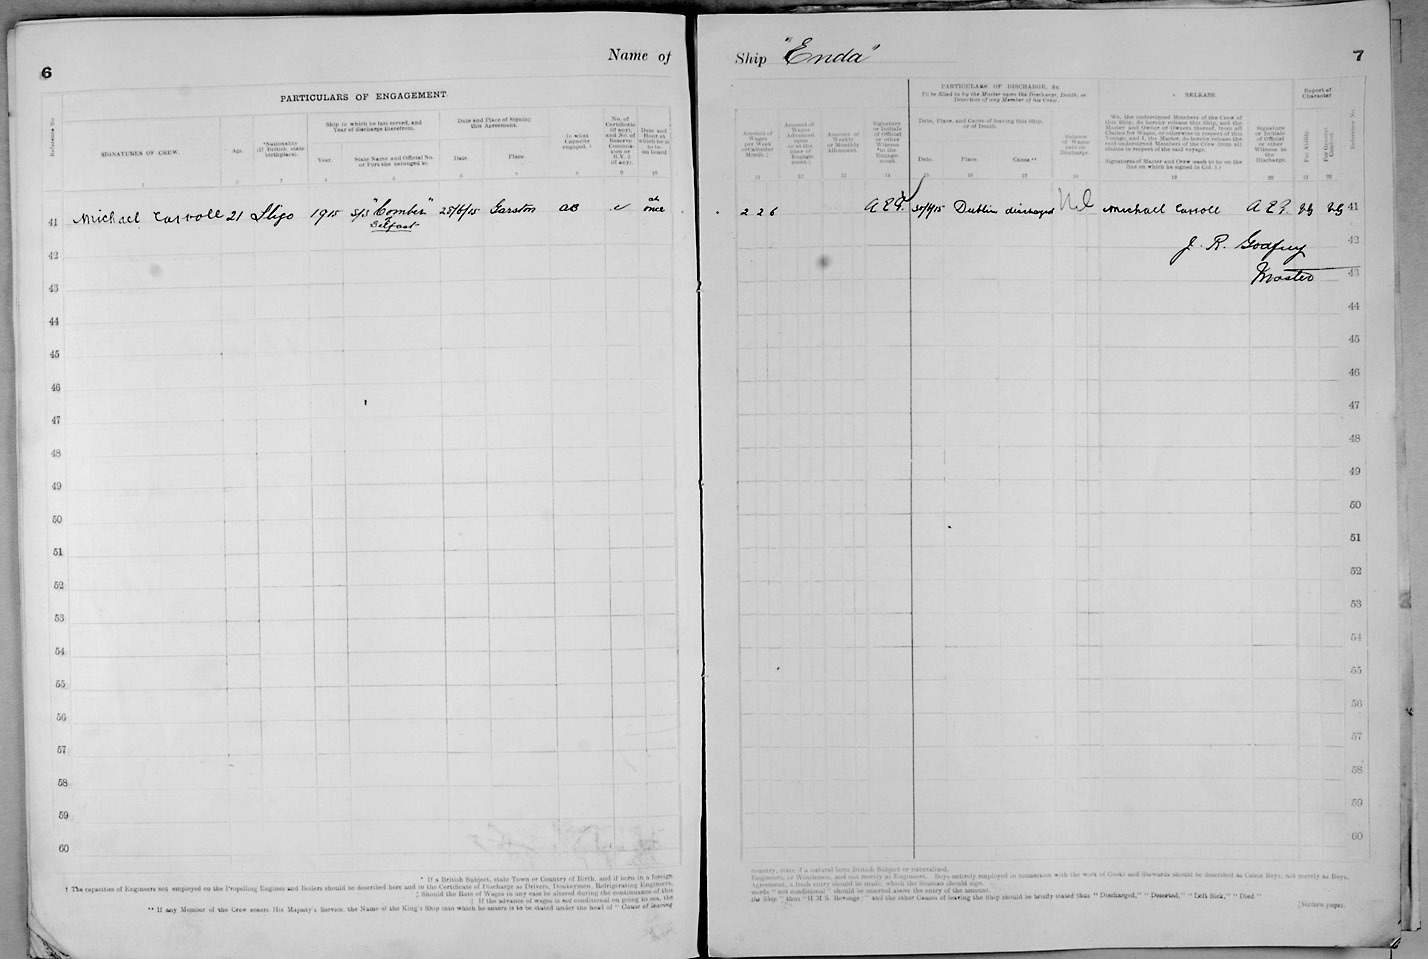 6
Name of
PARTICULARS OF ENGAGEMENT.
Reference No.
SIGNATURES OF CREW.
Age.
*Nationality
(if British state
birthplace).
Ship in which he last served, and
Year of discharge therefrom.
Year.
State Name and Official No.
or Port she belonged to.
Date and Place of Signing
this Agreement.
Date.
Place.
In what
Capacity
engaged. †
No. of
Certificate
(if any),
and No. of
Reserve
Commis-
sion or
R.V. 2
(if any).
Date and
Hour at
which he is
to be
on board
1
7
8
9
10
41 Michael Carroll 21 Sligo 1915 S/S "Comber" 25/6/15 Garston AB at once
Belfast
42
43
44
45
46
47
48
49
50
51
52
53
54
55
56
57
58
59
60
* If a British Subject, state Town or Country of Birth, and if born in a foreign
† The capacities of Engineers not employed on the Propelling Engines and Boilers should be described here and in the Certificate of Discharge as Drivers, Donkeymen, Refrigerating Engineers,
‡ Should the Rate of Wages in any case be altered during the continuance of this
§ If the advance of wages is not conditional on going to sea, the
** If any Member of the Crew enters His Majesty's Service, the Name of the King's Ship into which he enters is to be stated under the head of "Cause of leaving
Ship "Enda"
7
PARTICULARS OF DISCHARGE, &c.
To be filled in by the Master upon the Discharge, Death, or
Desertion of any Member of his Crew.
RELEASE.
Report of
Character
Amount of
Wages
per Week
or Calendar
Month.‡
Amount of
Wages
Advanced
upon
or at the
time of
Engage-
ment.§
Amount of
Weekly
or Monthly
Allotment.
Signature
or Initials
of Official
or other
Witness
to the
Engage-
ment.
Date, Place, and Cause of leaving this Ship,
or of Death.
Date.
Place.
Cause.**
Balance
of Wages
paid on
Discharge.
We, the undersigned Members of the Crew of
this Ship, do hereby release this Ship, and the
Master and Owner or Owners thereof, from all
Claims for Wages, or otherwise in respect of this
Voyage, and I, the Master, do hereby release the
said undersigned Members of the Crew from all
claims in respect of the said voyage.
Signatures of Master and Crew (each to be on the
line on which he signed in Col. 1.)
Signature
or Initials
of Official
or other
Witness to
the
Discharge.
For Ability.
For General
Conduct.
Reference No.
11
12
13
14
15
16
17
18
19
20
21
22
2 2 6 Dublin discharged Nil Michael Carroll VG VG 41
J. R. Godfrey 42
Master 43
44
45
46
47
48
49
50
51
52
53
54
55
56
57
58
59
60
country, state if a natural born British Subject or naturalised.
Engineers, or Winchmen, and not merely as Engineers. Boys entirely employed in connection with the work of Cooks and Stewards should be described as Cabin Boys, not merely as Boys.
Agreement, a fresh entry should be made, which the Seaman should sign.
words "not conditional" should be inserted above the entry of the amount.
the Ship" thus "H.M.S. Revenge;" and the other Causes of leaving the Ship should be briefly stated thus "Discharged," "Deserted," "Left Sick," "Died."
[Sixteen pages.